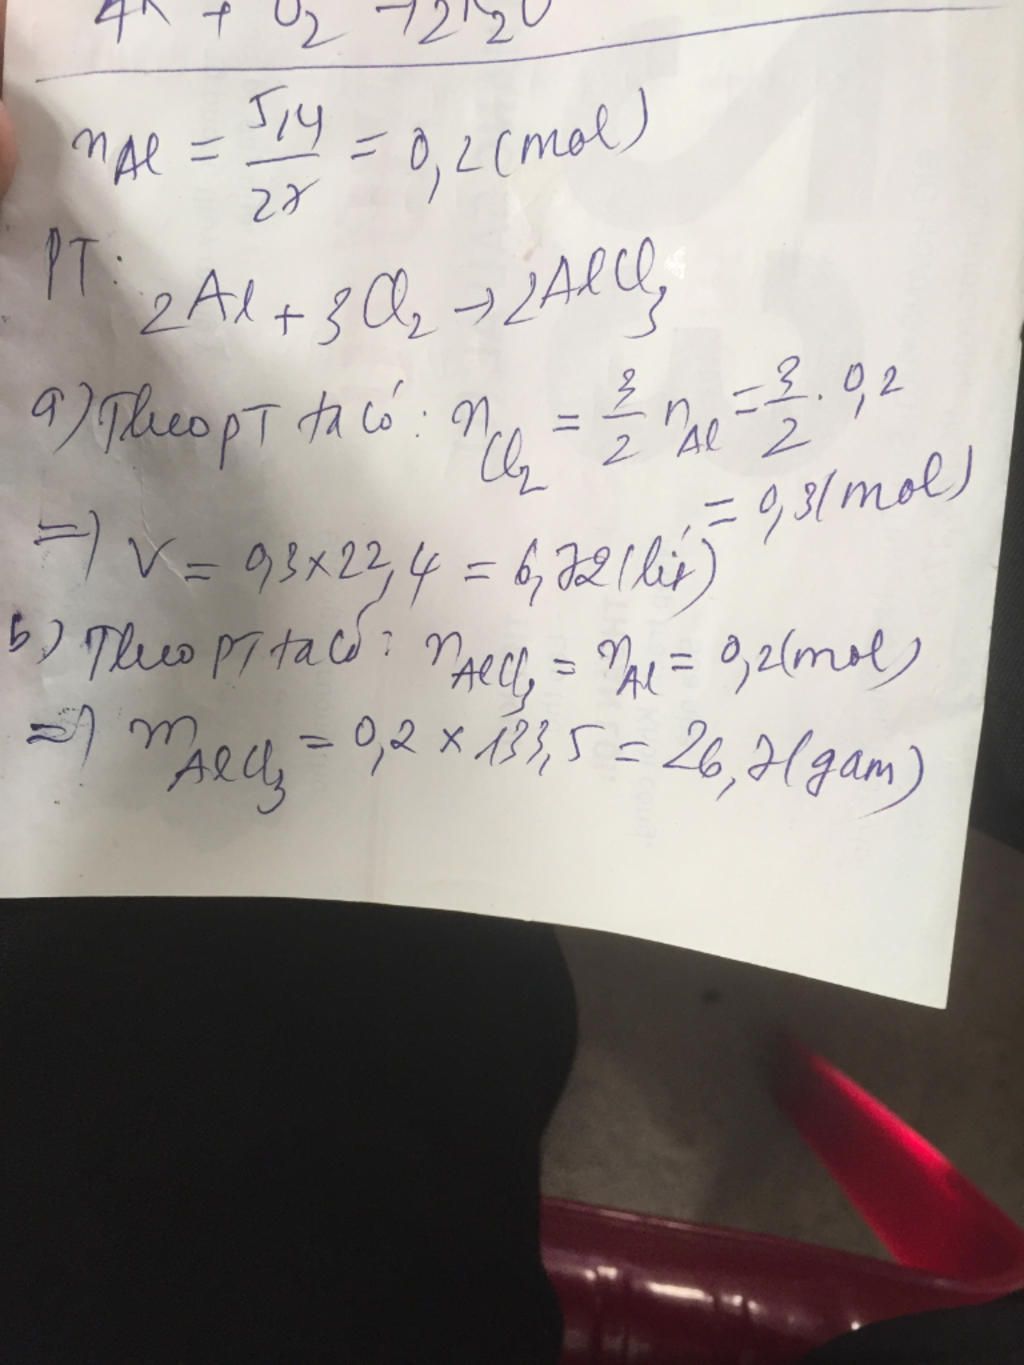 4K + O₂ → 2K₂O
n_Al = 5,4/27 = 0,2 (mol)
PT: 2Al + 3Cl₂ → 2AlCl₃
a) Theo PT ta có: n_Cl₂ = 3/2 n_Al = 3/2 . 0,2
= 0,3 (mol)
=> V = 0,3 x 22,4 = 6,72 (lít)
b) Theo PT ta có: n_AlCl₃ = n_Al = 0,2 (mol)
=> m_AlCl₃ = 0,2 x 133,5 = 26,7 (gam)